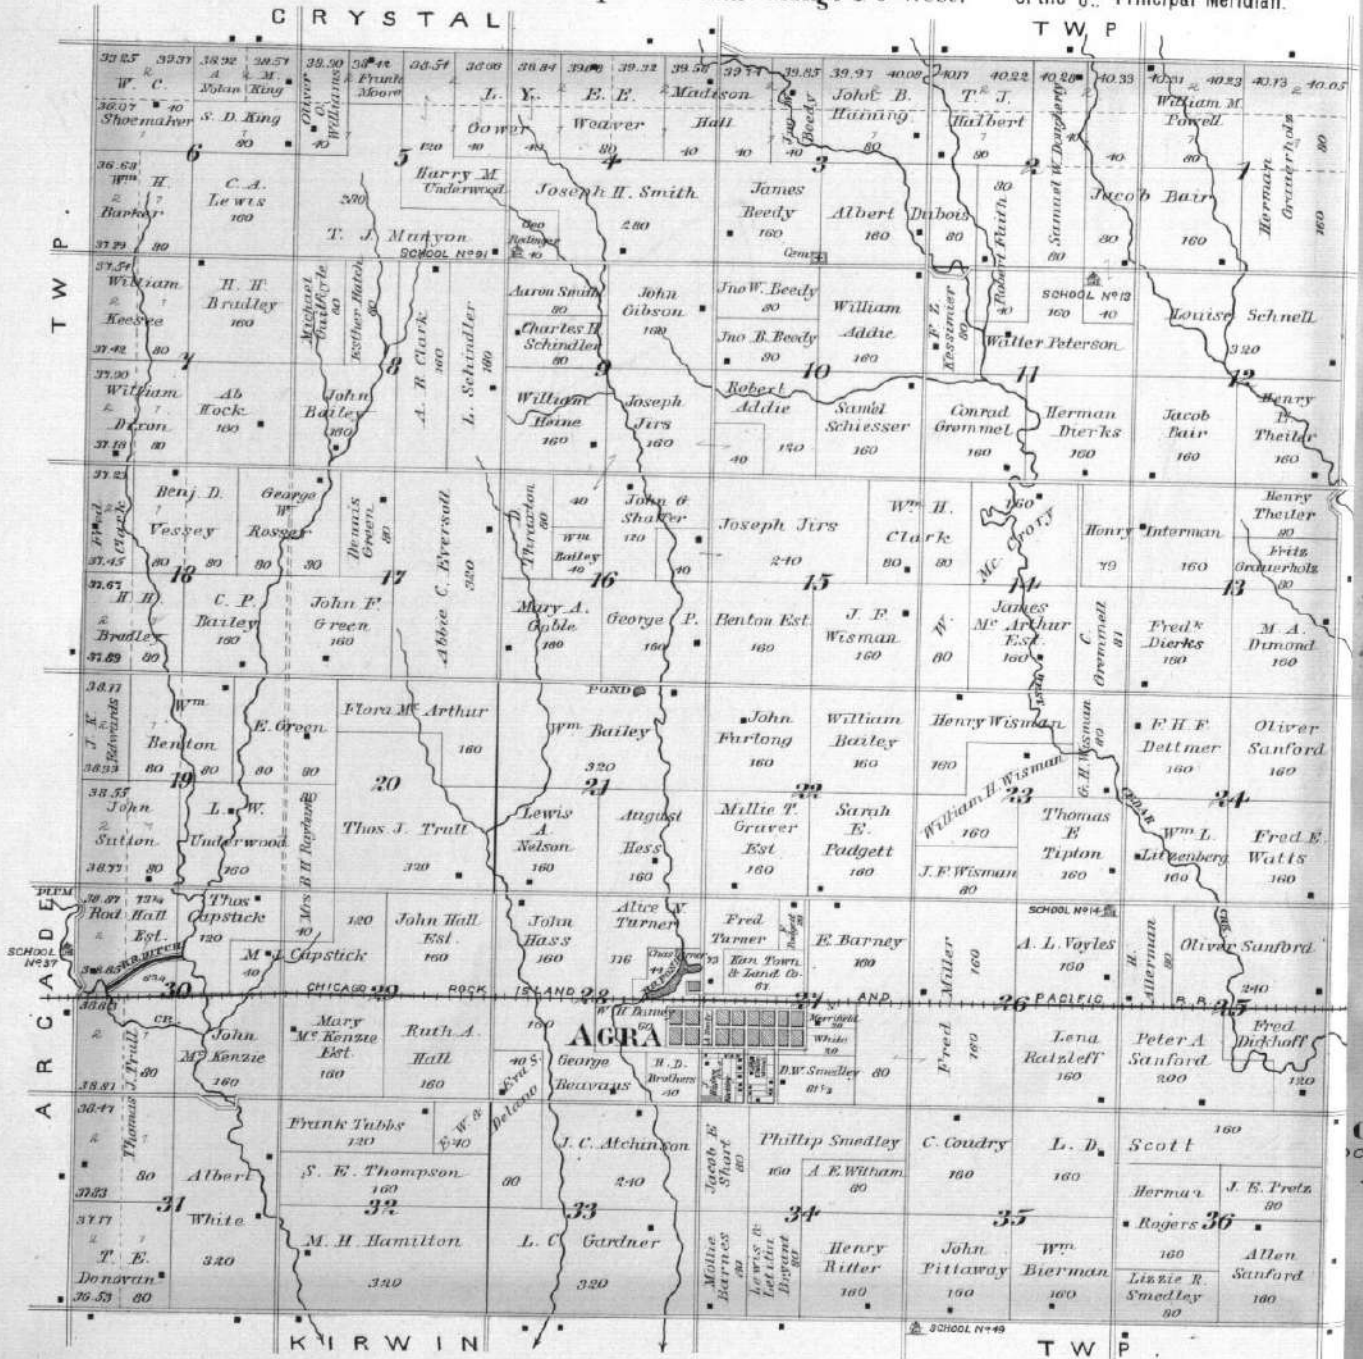 CRYSTAL
TWP
Principal Meridian.
39.25 39.37 38.92 38.57 39.30 38.42 38.54 38.66 38.84 39.32 39.85 39.97 40.17 40.22 40.28 40.33 40.31 40.23 40.13 40.05
W. C. Shoemaker
36.07
40
A Nolan
M. King
S. D. King
80
Oliver O. Williams
40
Frank Moore
120
L. Y. Gower
40
E. E. Weaver
80
Madison Hall
40
40
Jno W. Beedy
40
John B. Haining
80
T. J. Halbert
80
Samuel W. Dougherty
40
80
40
William M. Powell
80
Herman Grauerholz
80
160
6
5
4
3
2
1
36.63
Wm H. Barker
37.29
80
C. A. Lewis
160
T. J. Manyon
Harry M. Underwood
SCHOOL No 91
Geo Redinger
40
Joseph H. Smith
280
James Beedy
160
Cem
Albert Dubois
160
80
80
Robert Faith
40
Jacob Bair
80
160
TWP
37.54
William Keesee
37.42
80
H. H. Bradley
160
Michael Guilfoyle
80
Esther Hatch
80
A. R. Clark
160
L. Schindler
160
Aaron Smith
80
Charles H Schindler
80
John Gibson
160
Jno W. Beedy
80
Jno B. Beedy
80
William Addie
160
F E Kessimier
80
SCHOOL No 12
160
40
Walter Peterson
Louise Schnell
320
7
8
9
10
11
12
37.30
William Dixon
37.18
80
Ab Hock
160
John Bailey
160
William Heine
160
Joseph Jirs
160
Robert Addie
40
120
Saml Schiesser
160
Conrad Gremmel
160
Herman Dierks
160
Jacob Bair
160
Henry E. Theiler
160
37.23
Fred Clark
37.45
80
Benj D. Vessey
80
George W Rosser
80
80
Dennis Green
80
Abbie C. Eversoll
320
D Thruxton
80
40
Wm Bailey
40
John G Shaffer
120
40
Joseph Jirs
240
Wm H. Clark
80
80
W. Mc Crory
160
80
Henry Interman
79
160
Henry Theiler
80
Fritz Grauerholz
80
18
17
16
15
14
13
37.67
H H. Bradley
37.89
80
C. P. Bailey
160
John F. Green
160
Mary A. Goble
160
George P.
160
Benton Est.
160
J. F. Wisman
160
James Mc Arthur Est.
160
C Gremmell
81
Fredk Dierks
160
M. A. Dimond
160
38.17
J. K. Edwards
38.33
80
Wm Benton
80
E. Green
80
80
Flora Mc Arthur
160
POND
Wm Bailey
320
John Furlong
160
William Bailey
160
Henry Wisman
160
G. H. Wisman
80
F. H. F. Dettmer
160
Oliver Sanford
160
19
20
21
22
23
24
38.55
John Sutton
38.77
80
L. W. Underwood
160
Mrs B H Rayburn
80
40
Thos. J. Trull
320
Lewis A. Nelson
160
August Hess
160
Millie T. Gruver Est
160
Sarah E. Padgett
160
William H. Wisman
160
J. F. Wisman
80
Thomas E Tipton
160
CEDAR
Wm L. Litzenberg
160
Fred E Watts
160
PLUM
ARCADE
SCHOOL No 37
38.87
Rod Hall Est.
R.R. DITCH
Thos Capstick
120
M J Capstick
40
120
John Hall Est.
160
John Hass
160
Alice N. Turner
116
Fred Turner
Kan Town & Land Co.
67
E. Barney
160
Fred Miller
160
160
SCHOOL No 14
A. L. Voyles
160
H. Allerman
80
Oliver Sanford
240
CRK
30
29
28
27
26
25
CHICAGO ROCK ISLAND AND PACIFIC R. R.
38.83
CR.
Thomas J. Trull
38.81
80
John Mc Kenzie
160
Mary Mc Kenzie Est
160
Ruth A. Hall
160
160
W H Dainey
60
AGRA
40
Eva S. Delano
George Beavans
H. D. Brothers
40
Merrifield
20
White
20
D. W. Smedley
61½
80
Lena Ratzleff
160
Peter A Sanford
200
Fred Dickhoff
120
38.47
80
37.83
Albert White
320
Frank Tubbs
120
E. W. &
40
S. E. Thompson
160
80
J. C. Atchinson
240
Jacob E Shart
80
Phillip Smedley
160
A E Witham
80
C. Coudry
160
L. D. Scott
160
160
Herman Rogers
160
J. E. Pretz
80
31
32
33
34
35
36
37.17
T. E. Donovan
36.53
80
M. H. Hamilton
320
L. C Gardner
320
Mollie Barnes
80
Lewis & Letitia Bryant
80
Henry Ritter
160
John Pittaway
160
Wm Bierman
160
Lizzie R. Smedley
80
Allen Sanford
160
SCHOOL No 49
KIRWIN
TWP.